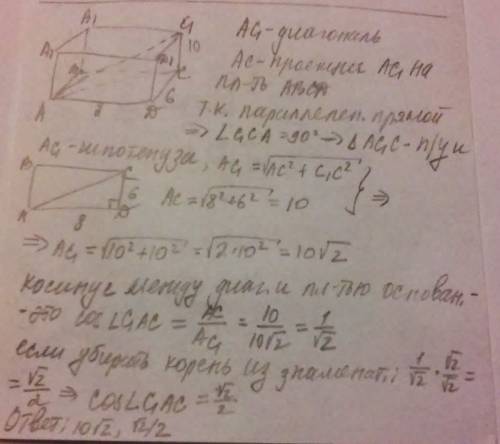 A₁ C₁ 10
AC₁ - диагональ
AC - проекция AC₁ на
пл-ть ABCD
т.к. параллелеп. прямой
⇒ ∠C₁CA = 90° → ΔAC₁C - п/у и
A 8 D 6 C
AC₁ - гипотенуза, AC₁ = √AC² + C₁C²
B C 6 A 8 D
AC = √8² + 6² = 10 } ⇒
⇒ AC₁ = √10² + 10² = √2·10² = 10√2
косинус между диаг. и пл-тью основан. -
- это cos∠C₁AC = AC/AC₁ = 10/10√2 = 1/√2
если убирать корень из знаменат.: 1/√2 · √2/√2 =
= √2/2 ⇒ cos∠C₁AC = √2/2.
Ответ: 10√2, √2/2